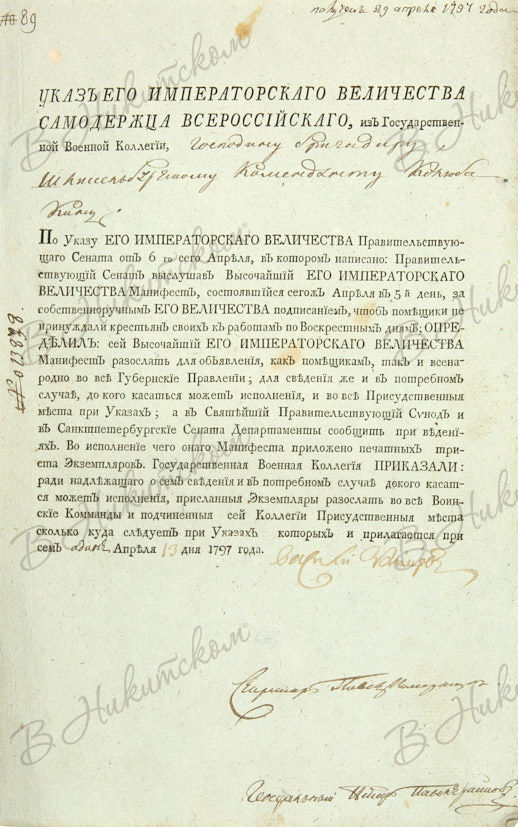 89
получен 29 апреля 1797 года
УКАЗЪ ЕГО ИМПЕРАТОРСКАГО ВЕЛИЧЕСТВА
САМОДЕРЖЦА ВСЕРОССІЙСКАГО, изъ Государствен-
ной Военной Коллегіи, Господину Бригадиру
Коменданту
По Указу ЕГО ИМПЕРАТОРСКАГО ВЕЛИЧЕСТВА Правительствую-
щаго Сената отъ 6 го сего Апрѣля, въ которомъ написано: Правитель-
ствующій Сенатъ выслушавъ Высочайшій ЕГО ИМПЕРАТОРСКАГО
ВЕЛИЧЕСТВА Манифестъ, состоявшійся сегожъ Апрѣля въ 5 й день, за
собственноручнымъ ЕГО ВЕЛИЧЕСТВА подписаніемъ, чтобъ помѣщики не
принуждали крестьянъ своихъ къ работамъ по Воскрестнымъ днямъ; ОПРЕ-
ДѢЛИЛЪ: сей Высочайшій ЕГО ИМПЕРАТОРСКАГО ВЕЛИЧЕСТВА
Манифестъ разослать для объявленія, какъ помѣщикамъ, такъ и всена-
родно во всѣ Губернскіе Правленіи; для свѣденія же и въ потребномъ
случаѣ, до кого касаться можетъ исполненія, и во всѣ Присудственныя
мѣста при Указахъ; а въ Святѣйшій Правительствующій Сѵнодъ и
въ Санктпетербургскіе Сената Департаменты сообщить при вѣдені-
яхъ. Во исполненіе чего онаго Манифеста приложено печатныхъ три-
ста Экземпляровъ. Государственная Военная Коллегія ПРИКАЗАЛИ:
ради надлѣжащаго о семъ свѣденія и въ потребномъ случаѣ докого касат-
ся можетъ исполненія, присланныя Экземпляры разослать во всѣ Воин-
скіе Комманды и подчиненныя сей Коллегіи Присудственныя мѣста
сколько куда слѣдуетъ при Указахъ которыхъ и прилагается при
семъ одинъ Апрѣля 13 дня 1797 года.
Секретарь Павел
В Никитском